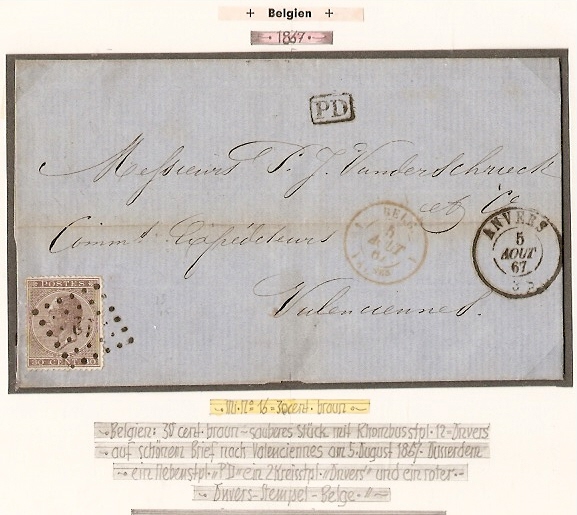 + Belgien +
· 1867 ·
PD
Messieurs P. J. Vanderschrieck
et Cie
Commts Expéditeurs
Valenciennes.
BELG.
5
AOUT
67
ANVERS
5
AOUT
67
POSTES
Mi. No 16 = 30 cent. braun
Belgien: 30 cent. braun - sauberes Stück mit Rhombusstpl. 12 = Anvers
auf schönem Brief nach Valenciennes am 5. August 1867. Ausserdem
ein Nebenstpl. "PD" ein 2 Kreisstpl. "Anvers" und ein roter
Anvers-Stempel-Belge "